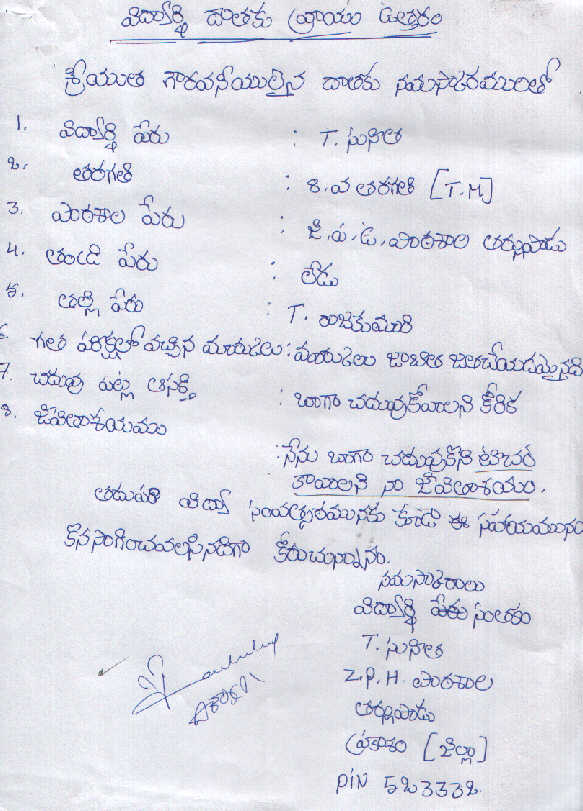 విద్యార్థి దాతకు వ్రాయు ఉత్తరం
శ్రీయుత గౌరవనీయులైన దాతకు నమస్కారములతో
1. విద్యార్థి పేరు : T. సునీత
2. తరగతి : 8.వ తరగతి [T.M]
3. పాఠశాల పేరు : జి.ప.ఉ. పాఠశాల
4. తండ్రి పేరు : లేడు
5. తల్లి పేరు : T. రాజకుమారి
6. గత పరీక్షలో వచ్చిన మార్కులు : మార్కులు జాబితా జతచేయడమైనది
7. చదువు పట్ల ఆసక్తి : బాగా చదువుకోవాలని కోరిక
8. జీవితాశయము
: నేను బాగా చదువుకొని టీచర్
కావాలని నా జీవితాశయం.
తదుపరి విద్యా సంవత్సరమునకు కూడా ఈ సహాయమును
కొనసాగించవలసినదిగా కోరుచున్నాను.
నమస్కారాలు
విద్యార్థి పేరు సంతకం
T. సునీత
Z.P.H. పాఠశాల
ప్రకాశం [జిల్లా]
PIN 523332